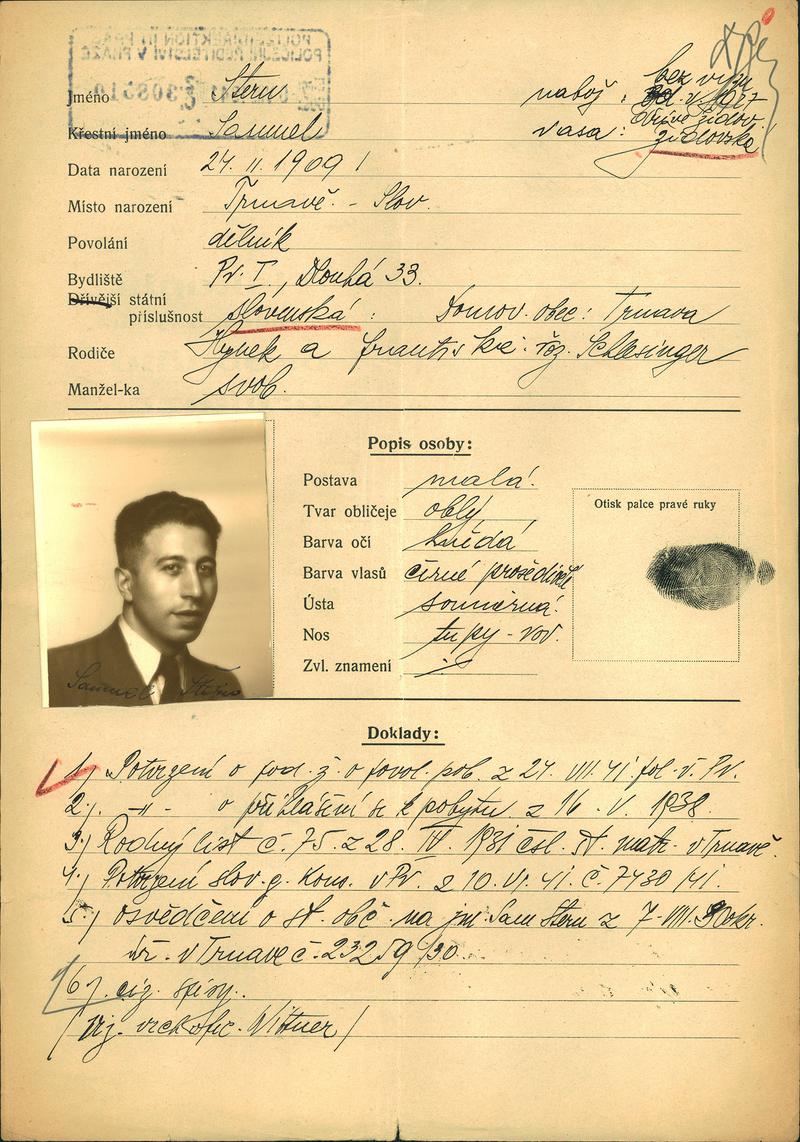 POLIZEIDIREKTION IN PRAG
POLICEJNÍ ŘEDITELSTVÍ V PRAZE
308510
Jméno Stern
nábož: bez vyzn.
od. v. 1927
dříve židov.
Křestní jméno Samuel
rasa: židovská
Data narození 24. II. 1909
Místo narození Trnavě - Slov.
Povolání dělník
Bydliště Pr. I., Dlouhá 33.
Dřívější státní
příslušnost slovenská: Domov. obec: Trnava
Rodiče Hynek a Františka roz. Schlesinger
Manžel-ka svob.
Popis osoby:
Postava malá.
Tvar obličeje oblý
Barva očí hnědá
Barva vlasů černé prošedivělé
Ústa souměrná.
Nos tupý - rov.
Zvl. znamení
Otisk palce pravé ruky
Samuel Stern
Doklady:
1) Potvrzení o pod. ž. o povol. pob. z 24. VII. 41 pol. ř. Pr.
2). -"- o přihlášení se k pobytu z 16. V. 1938.
3) Rodný list č. 75. z 28. IV. 1931 čsl. st. matr. v Trnavě.
4) Potvrzení slov. g. kons. v Pr. z 10. VI. 41. č. 7430/41.
5) Osvědčení o st. obč. na jm. Sam. Stern z 7. VIII. 30 okr.
úř. v Trnave č. 23259/30.
6). ciz. spisy.